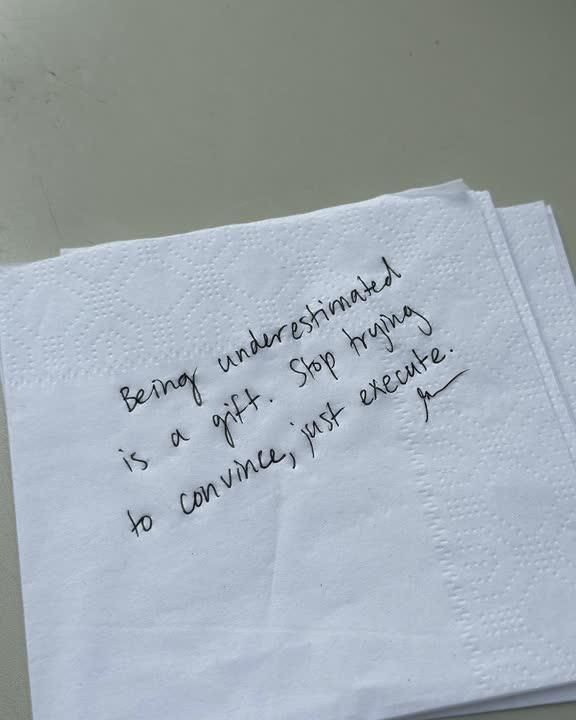 Being underestimated
is a gift. Stop trying
to convince, just execute.